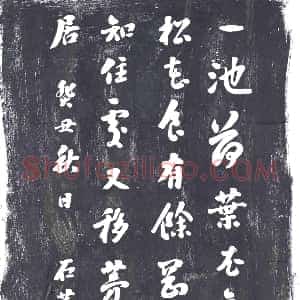 一池荷葉衣
松花食有餘
知住處又移茅
居 癸丑秋日 石
Shufaziliao.com